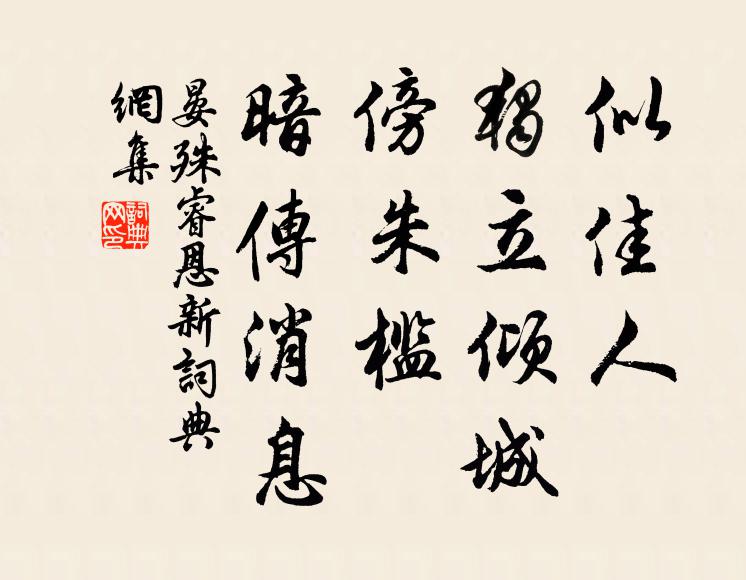 似佳人
獨立傾城
傍朱檻
暗傳消息
晏殊睿恩新詞典
網集
詞典網印